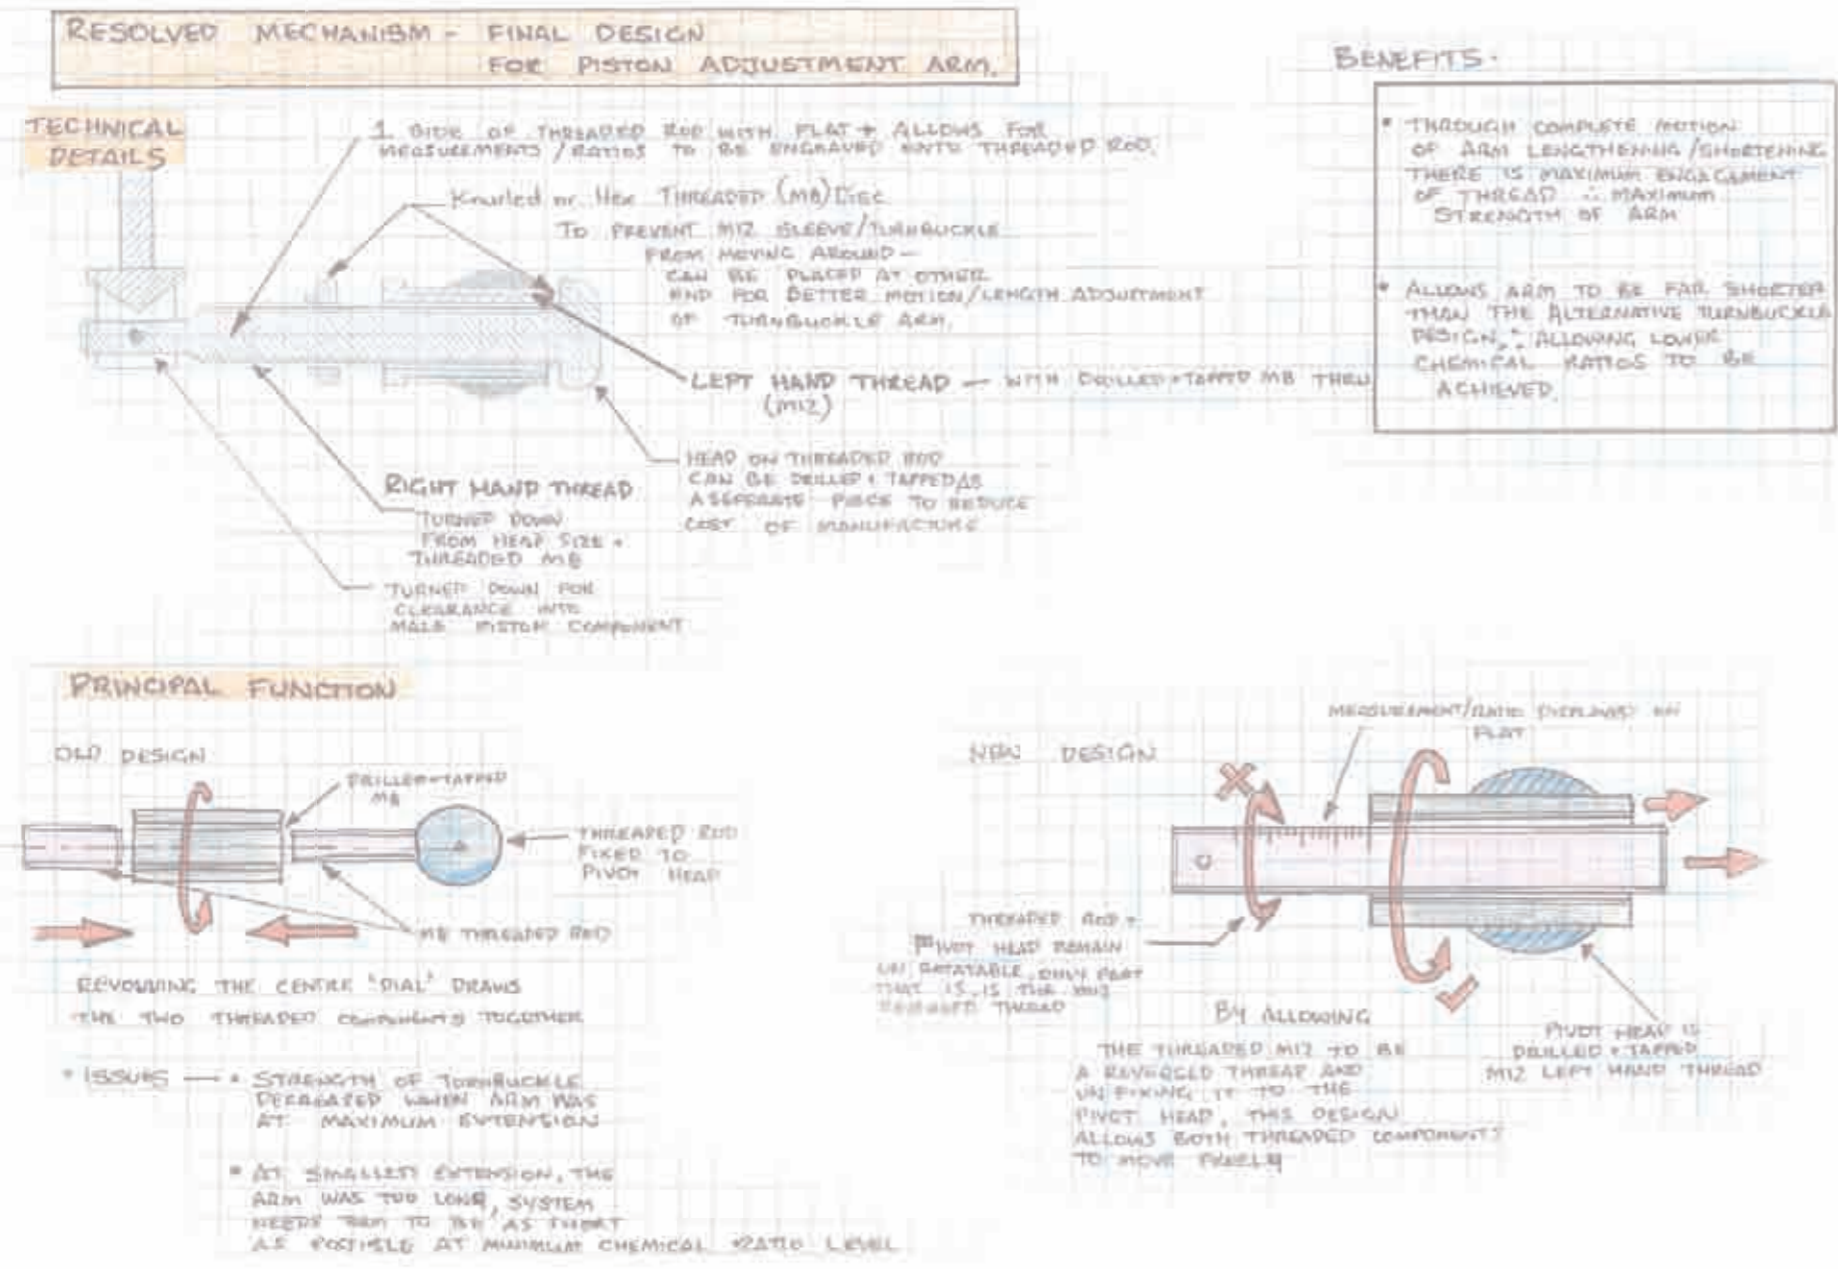 RESOLVED MECHANISM - FINAL DESIGN
FOR PISTON ADJUSTMENT ARM.
TECHNICAL
DETAILS
1 SIDE OF THREADED ROD WITH FLAT + ALLOWS FOR
MEASUREMENTS / RATIOS TO BE ENGRAVED ONTO THREADED ROD.
Knurled or Hex THREADED (M8) DISC
TO PREVENT M12 SLEEVE/TURNBUCKLE
FROM MOVING AROUND -
CAN BE PLACED AT OTHER
END FOR BETTER MOTION/LENGTH ADJUSTMENT
OF TURNBUCKLE ARM.
LEFT HAND THREAD - WITH DRILLED + TAPPED M8 THRU
(M12)
HEAD ON THREADED ROD
CAN BE DRILLED + TAPPED AS
A SEPERATE PIECE TO REDUCE
COST OF MANUFACTURE
RIGHT HAND THREAD
TURNED DOWN
FROM HEAD SIZE +
THREADED M8
TURNED DOWN FOR
CLEARANCE INTO
MALE PISTON COMPONENT
BENEFITS.
* THROUGH COMPLETE MOTION
OF ARM LENGTHENING/SHORTENING
THERE IS MAXIMUM ENGAGAMENT
OF THREAD ∴ MAXIMUM
STRENGTH OF ARM
* ALLOWS ARM TO BE FAR SHORTER
THAN THE ALTERNATIVE TURNBUCKLE
DESIGN, ∴ ALLOWING LOWER
CHEMICAL RATIOS TO BE
ACHIEVED.
PRINCIPAL FUNCTION
OLD DESIGN
DRILLED + TAPPED
M8
THREADED ROD
FIXED TO
PIVOT HEAD
M8 THREADED ROD
REVOLVING THE CENTRE "DIAL" DRAWS
THE TWO THREADED COMPONENTS TOGETHER
* ISSUES - * STRENGTH OF TURNBUCKLE
DECREASED WHEN ARM WAS
AT MAXIMUM EXTENSION
* AT SMALLEST EXTENSION, THE
ARM WAS TOO LONG, SYSTEM
NEEDS ARM TO BE AS SHORT
AS POSSIBLE AT MINIMUM CHEMICAL RATIO LEVEL
NEW DESIGN
MEASUREMENT/RATIO DISPLAYED ON
FLAT
THREADED ROD +
PIVOT HEAD REMAIN
UN ROTATABLE, ONLY PART
THAT IS, IS THE M12
THREAD
BY ALLOWING
THE THREADED M12 TO BE
A REVERSED THREAD AND
UN FIXING IT TO THE
PIVOT HEAD, THIS DESIGN
ALLOWS BOTH THREADED COMPONENTS
TO MOVE FREELY
PIVOT HEAD IS
DRILLED + TAPPED
M12 LEFT HAND THREAD